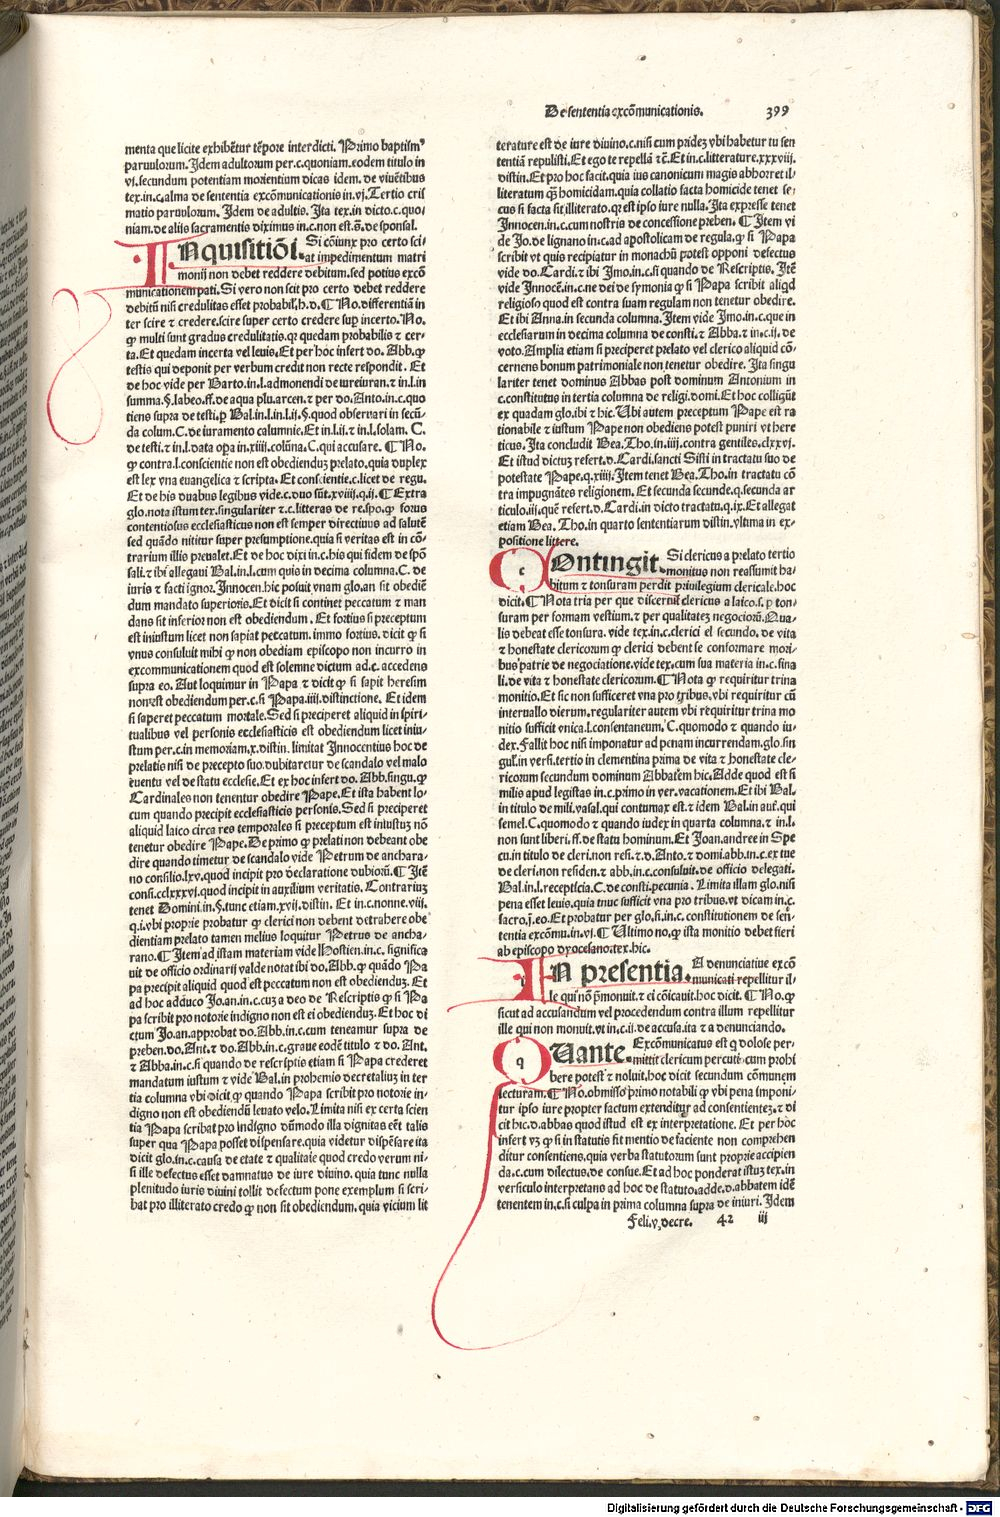 De sententia excōmunicationis. 399
menta que licite exhibētur tēpore interdicti. Primo baptismꝰ
paruulorum. Idem adultorum per.c.quoniam.eodem titulo in
vj.secundum potentiam morientium dicas idem. de viuētibus
tex.in.c.alma de sententia excōmunicationis in.vj. Tertio cris
matio paruulorum. Idem de adultis. Ita tex.in dicto.c.quo-
niam.de aliis sacramentis diximus in.c.non est.s̄.de sponsal.
INquisitiōi. Si cōiunx pro certo sci-
at impedimentum matri
monij non debet reddere debitum.sed potius excō
municationem pati. Si vero non scit pro certo debet reddere
debitū nisi credulitas esset probabil.h.d. ¶ No.differentiā in
ter scire ⁊ credere.scire super certo credere suꝑ incerto. No.
ꝙ multi sunt gradus credulitatis.qr quedam probabilis ⁊ cer-
ta. Et quedam incerta vel leuis. Et per hoc infert do. Abb. ꝙ
testis qui deponit per verbum credit non recte respondit. Et
de hoc vide per Barto.in.l.admonendi de iureiuran.⁊ in.l.in
summa.§.labeo.ff.de aqua plu.arcen.⁊ per do.Anto.in.c.quo
tiens supra de testi.ꝑ Bal.in.l.in.l.ij.§.quod obseruari in secū-
da colum.C.de iuramento calumnie. Et in.l.ij.⁊ in.l.solam. C.
de testi.⁊ in.l.data oꝑa in.xiiij.colūna.C.qui accusare. ¶ No.
ꝙ contra.l.conscientie non est obediendus prelato.quia duplex
est lex vna euangelica ⁊ scripta. Et conscientie.c.licet de regu.
Et de his duabus legibus vide.c.duo sūt.xviiij.q.ij. ¶ Extra
glo.nota istum tex.singulariter ⁊.c.litteras de re.spo.ꝙ forus
contentiosus ecclesiasticus non est semper directiuus ad salutē
sed quādo nititur super presumptione.quia si veritas est in cō-
trarium illis preualet. Et de hoc dixi in.c.his qui fidem de spō
sali.⁊ ibi allegaui Bal.in.l.cum quis in decima columna. C. de
iuris ⁊ facti ignor. Innocen.hic posuit vnam glo.an sit obediē
dum mandato superioris. Et dicit si continet peccatum ⁊ man
dans sit inferior non est obediendum. Et fortius si preceptum
est iniustum licet non sapiat peccatum.immo fortius.dicit ꝙ si
vnus consuluit mihi ꝙ non obediam episcopo non incurro in
excommunicationem quod est solemne dictum ad.c.accedens
supra eo. Aut loquimur in Papa ⁊ dicit ꝙ si sapit heresim
non est obediendum per.c.si Papa.iiij.distinctione. Et idem
si saperet peccatum mortale. Sed si preciperet aliquid in spiri-
tualibus vel personis ecclesiasticis est obediendum licet iniu-
stum per.c.in memoriam.x.distin. limitat Innocentius hoc de
prelatis nisi de precepto suo.dubitaretur de scandalo vel malo
euentu vel de statu ecclesie. Et ex hoc infert do. Abb.singu.ꝙ
Cardinales non tenentur obedire Pape. Et ista habent lo-
cum quando precipit ecclesiasticis personis. Sed si preciperet
aliquid laico circa res temporales si preceptum est iniustuz nō
tenetur obedire Pape. De primo ꝙ prelati non debeant obe
dire quando timetur de scandalo vide Petrum de anchara-
no consilio.lxv.quod incipit pro declaratione dubiorū. ¶ Itē
consi.cclxxxvj.quod incipit in auxilium veritatis. Contrarium
tenet Domini.in.§.tunc etiam.xvij.distin. Et in.c.nonne.viij.
q.i.vbi proprie probatur ꝙ clerici non debent detrahere obe
dientiam prelato tamen melius loquitur Petrus de ancha-
rano. ¶ Item ad istam materiam vide Hostien.in.c. significa
uit de officio ordinarij valde notat ibi do. Abb. ꝙ quādo Pa
pa precipit aliquid quod est peccatum non est obediendus. Et
ad hoc adduco Jo.an.in.c.cuz a deo de Rescriptis ꝙ si Pa
pa scribit pro notorie indigno non est ei obediendus. Et hoc di
ctum Jo.an.approbat do. Abb.in.c.cum teneamur supra de
preben.do.Ant.⁊ do. Abb.in.c.graue eodē titulo ⁊ do. Ant.
⁊ Abba.in.c.si quando de rescriptis etiam si Papa crederet
mandatum iustum ⁊ vide Bal.in prohemio decretaliuz in ter
tia columna vbi dicit ꝙ quando Papa scribit pro notorie in-
digno non est obediendū leuato velo. Limita nisi ex certa scien
tia Papa scribat pro indigno dūmodo illa dignitas eēt talis
super qua Papa posset dispensare.quia videtur dispēsare ita
dicit glo.in.c.causa de etate ⁊ qualitate quod credo verum ni-
si ille defectus esset damnatus de iure diuino. quia tunc nulla
plenitudo iuris diuini tollit defectum pone exemplum si scri-
bat pro illiterato credo ꝙ non sit obediendum. quia vicium lit
terature est de iure diuino.c.nisi cum pridez vbi habetur tu sen
tentiā repulisti. Et ego te repellā ⁊c̄. Et in.c.litterature.xxxviij.
distin. Et pro hoc facit.quia ius canonicum magis abhorret il-
literatum qm̄ homicidam.quia collatio facta homicide tenet se-
cus si facta sit illiterato. qr est ipso iure nulla. Ita expresse tenet
Innocen.in.c.cum nostris de concessione preben. ¶ Item vi
de Jo. de lignano in.c.ad apostolicam de regula.ꝙ si Papa
scribit vt quis recipiatur in monachū potest opponi defectus
vide do. Cardi.⁊ ibi Jmo.in.c.si quando de Rescriptis. Itē
vide Innocē.in.c.ne dei de symonia ꝙ si Papa scribit aliqd
religioso quod est contra suam regulam non tenetur obedire.
Et ibi Anna.in secunda columna. Item vide Jmo.in.c.que in
ecclesiarum in decima columna de consti.⁊ Abba.⁊ in.c.ij.de
voto. Amplia etiam si preciperet prelato vel clerico aliquid cō-
cernens bonum patrimoniale non tenetur obedire. Ita singu
lariter tenet dominus Abbas post dominum Antonium in
c.constitutus in tertia columna de religi.domi. Et hoc colligūt
ex quadam glo.ibi ⁊ hic. Ubi autem preceptum Pape est ra
tionabile ⁊ iustum Pape non obediens potest puniri vt here
ticus. Ita concludit Bea. Tho.in.iiij.contra gentiles.clxxvj.
Et istud dictuz refert.d. Cardi.sancti Sisti in tractatu suo de
potestate Pape.q.xiiij. Item tenet Bea. Tho.in tractatu cō
tra impugnātes religionem. Et secunda secunde.q.secunda ar
ticulo.iij.quē refert.d. Cardi.in dicto tractatu.q.ix. Et allegat
etiam Bea. Tho.in quarto sententiarum distin.vltima in ex-
positione littere.
cONtingit. Si clericus a prelato tertio
monitus non reassumit ha-
bitum ⁊ tonsuram perdit priuilegium clericale.hoc
dicit. ¶ Nota tria per que discernit̄ clericus a laico.s.p ton-
suram per formam vestium.⁊ per qualitatez negociorū. Qua-
lis debeat esse tonsura. vide tex.in.c.clerici el secundo. de vita
⁊ honestate clericorum ꝙ clerici debent se conformare mori-
busꝰ patrie de negociatione.vide tex.cum sua materia in.c.fina
li.de vita ⁊ honestate clericorum. ¶ Nota ꝙ requiritur trina
monitio. Et sic non sufficeret vna pro tribus.vbi requiritur cū
interuallo dierum.regulariter autem vbi requiritur trina mo
nitio sufficit vnica.l.consentaneum. C.quomodo ⁊ quando iu-
dex. Fallit hoc nisi imponatur ad penam incurrendam.glo.sin
gul̄.in versi.tertio in clementina prima de vita ⁊ honestate cle-
ricorum secundum dominum Abbatem hic. Adde quod est si
milis apud legistas in.c.primo in ver.vacationem. Et ibi Bal.
in titulo de mili.vasal.qui contumax est.⁊ idem Bal.in aut̄.qui
semel. C.quomodo ⁊ quando iudex in quarta columna.⁊ in.l.
non sunt liberi.ff.de statu hominum. Et Joan.andree in Spe
cu.in titulo de cleri.non resi.⁊.d.Anto.⁊ domi.abb.in.c.ex tue
de cleri.non residen.⁊ abb.in.c.consuluit.de officio delegati.
Bal.in.l.recepticia. C.de consti.pecunia. Limita illam glo.nisi
pena esset leuis.quia tnuc sufficit vna pro tribus.vt dicam in.c.
sacro.j̄.eo. Et probatur per glo.fi.in.c. constitutionem de sen̄-
tentia excōmu.in.vj. ¶ Ultimo no.ꝙ ista monitio debet fieri
ab episcopo dyocesano.tex.hic.
IN presentia. A denunciatiue excō
municati repellitur il-
le qui nō p̄monuit.⁊ ei cōicauit.hoc dicit. ¶ No.ꝙ
sicut ad accusandum vel procedendum contra illum repellitur
ille qui non monuit.vt in.c.ij.de accusa.ita ⁊ a denunciando.
qUante. Excōmunicatus est q̄ dolose per-
mittit clericum percuti.cum prohi
bere potest ⁊ noluit.hoc dicit secundum cōmunem
lecturam. ¶ No. obmisso primo notabili ꝙ vbi pena imponi-
tur ipso iure propter factum extenditur ad consentientez.⁊ di
cit hic.d.abbas quod istud est ex interpretatione. Et per hoc
infert vz ꝙ si in statutis fit mentio de faciente non comprehen
ditur consentiens.quia verba statutorum sunt proprie accipien
da.c.cum dilectus.de consue. Et ad hoc ponderat istuz tex.in
versiculo interpretans ad hoc de statuto.adde.d.abbatem idē
tenentem in.c.si culpa in prima columna supra de iniuri. Idem
Feli.v.decre. 42 iij
Digitalisierung gefördert durch die Deutsche Forschungsgemeinschaft - DFG